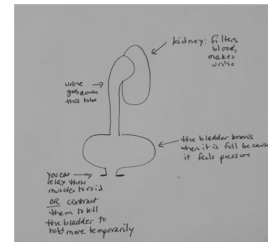 kidney: filters
blood,
makes
urine
urine
goes down
this tube
the bladder knows
when it is full because
it feels pressure
you can
relax these
muscles to void
OR contract
them to tell
the bladder to
hold more temporarily